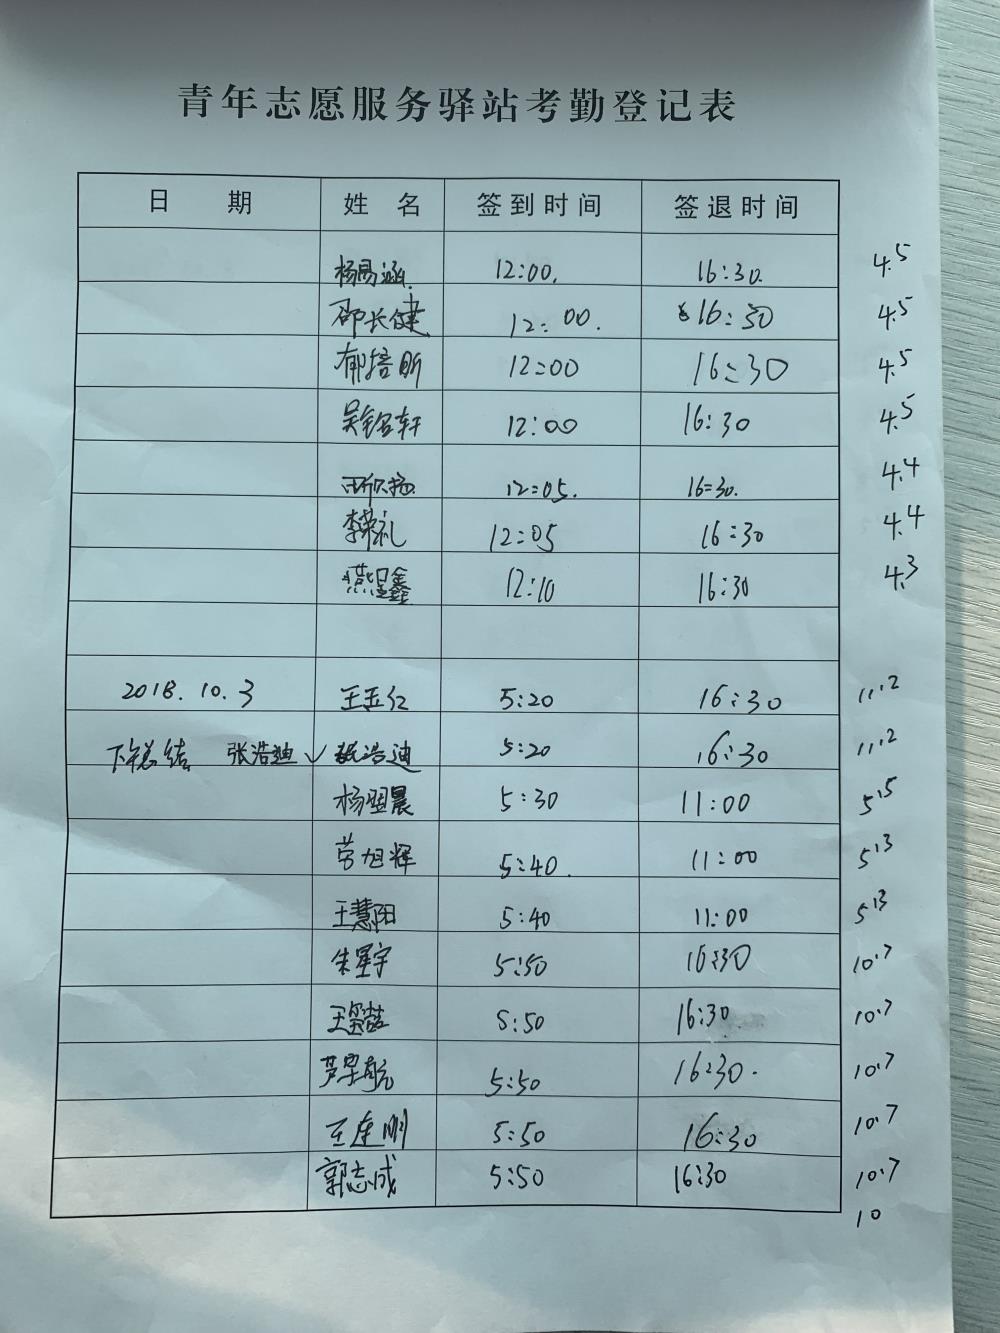 青年志愿服务驿站考勤登记表
日 期 姓 名 签到时间 签退时间
杨易涵 12:00. 16:30. 4.5
邵长健 12:00. 16:30 4.5
郁培昕 12:00 16:30 4.5
吴铭轩 12:00 16:30 4.5
12:05. 16:30. 4.4
李荣礼 12:05 16:30 4.4
鑫 12:10 16:30 4.3
2018.10.3 王玉红 5:20 16:30 11.2
总结 张浩迪 ✓ 张浩迪 5:20 16:30 11.2
杨翌晨 5:30 11:00 5.5
劳旭辉 5:40. 11:00 5.3
王慧阳 5:40 11:00 5.3
朱星宇 5:50 16:30 10.7
王 5:50 16:30 10.7
芦宇航 5:50 16:30. 10.7
王连刚 5:50 16:30 10.7
郭志成 5:50 16:30 10.7
10